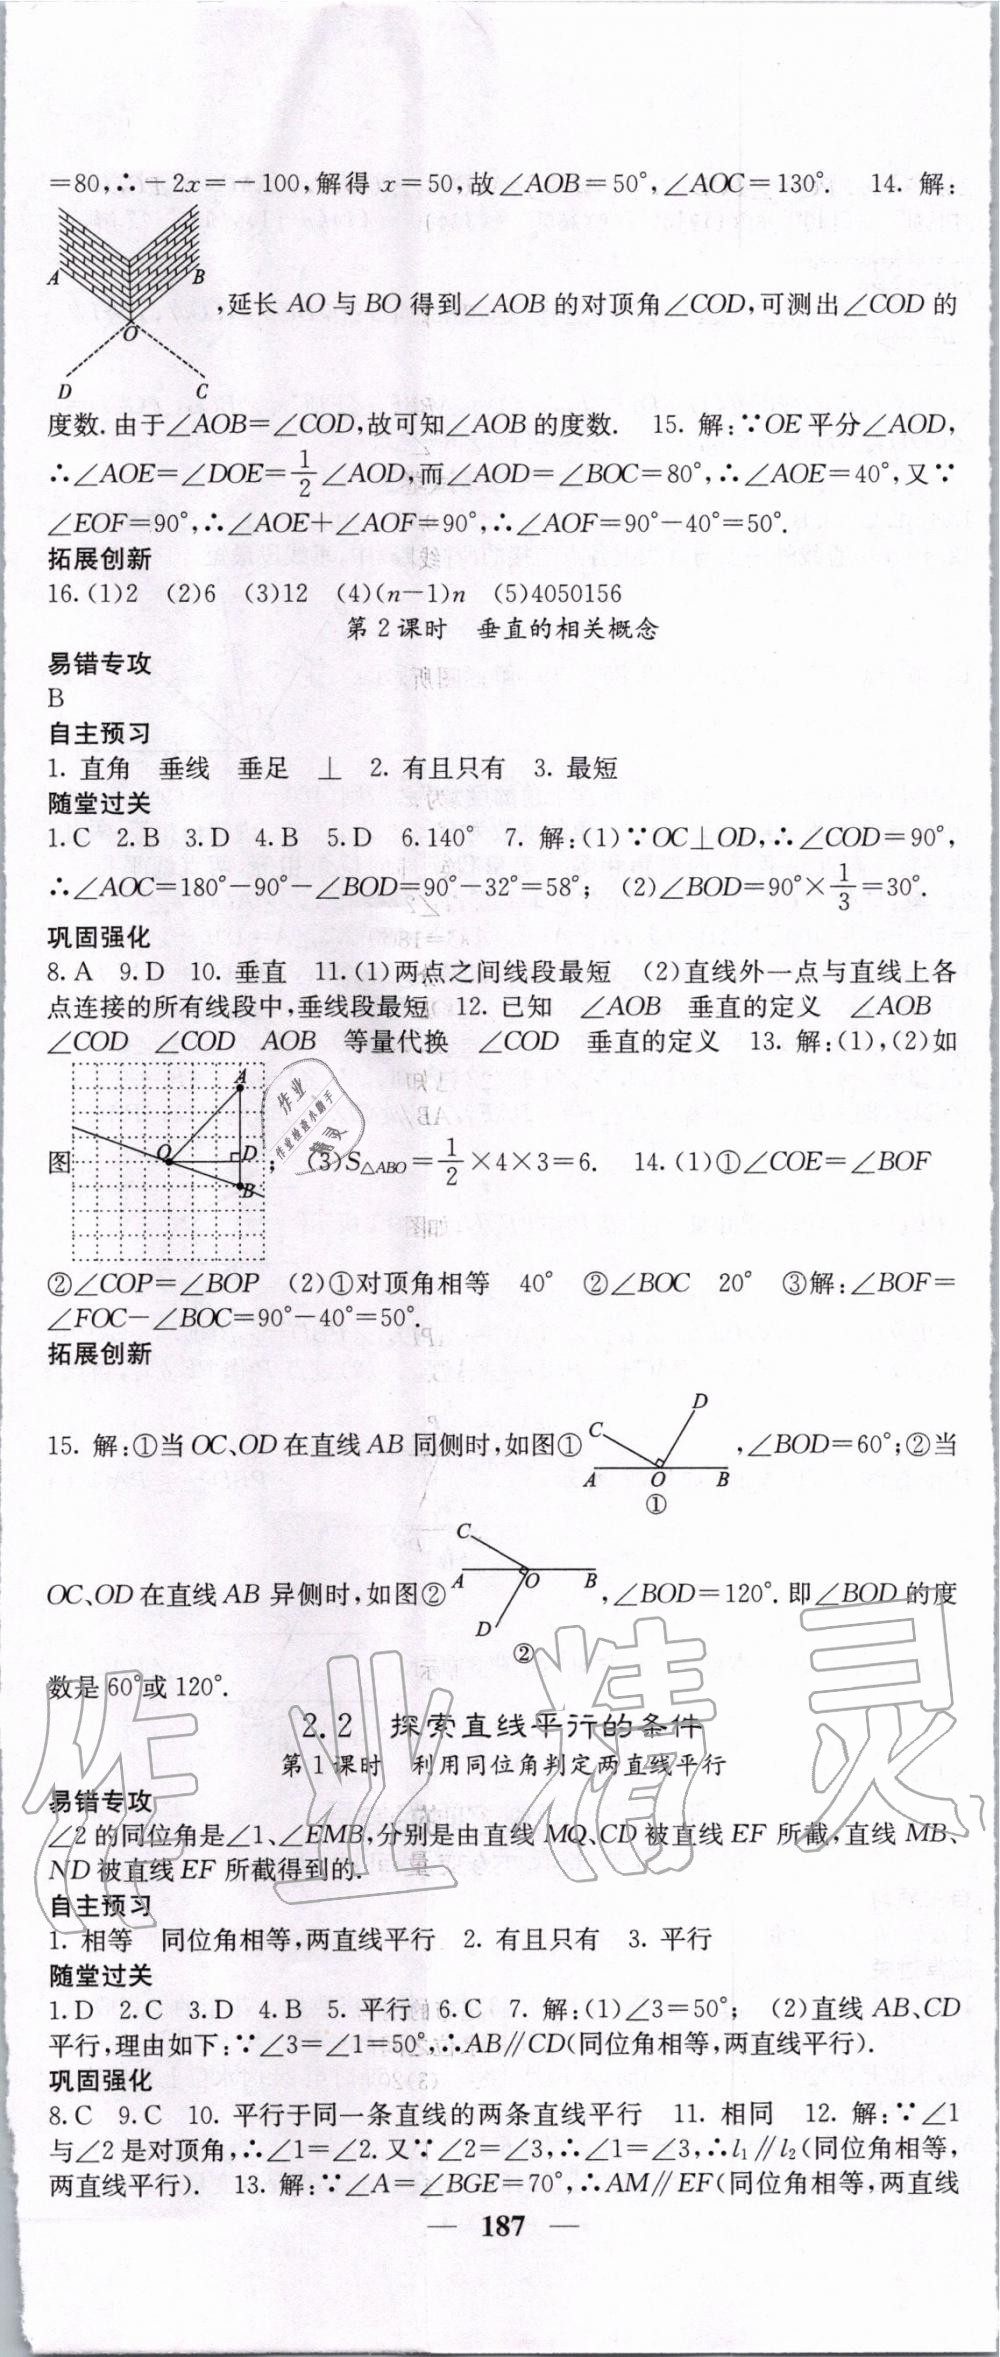 =80,∴－2x=－100,解得 x=50,故∠AOB=50°,∠AOC=130°. 14. 解:
A B O D C
,延长 AO 与 BO 得到∠AOB 的对顶角∠COD,可测出∠COD 的
度数.由于∠AOB=∠COD,故可知∠AOB 的度数. 15. 解:∵OE 平分∠AOD,
∴∠AOE=∠DOE=1/2∠AOD,而∠AOD=∠BOC=80°,∴∠AOE=40°,又∵
∠EOF=90°,∴∠AOE+∠AOF=90°,∴∠AOF=90°－40°=50°.
拓展创新
16.(1)2 (2)6 (3)12 (4)(n－1)n (5)4050156
第2课时 垂直的相关概念
易错专攻
B
自主预习
1. 直角 垂线 垂足 ⊥ 2. 有且只有 3. 最短
随堂过关
1.C 2.B 3.D 4.B 5.D 6.140° 7. 解:(1)∵OC⊥OD,∴∠COD=90°,
∴∠AOC=180°－90°－∠BOD=90°－32°=58°; (2)∠BOD=90°×1/3=30°.
巩固强化
8.A 9.D 10. 垂直 11.(1)两点之间线段最短 (2)直线外一点与直线上各
点连接的所有线段中,垂线段最短 12. 已知 ∠AOB 垂直的定义 ∠AOB
∠COD ∠COD AOB 等量代换 ∠COD 垂直的定义 13. 解:(1),(2)如
图 A O D B ; (3)S△ABO=1/2×4×3=6. 14.(1)①∠COE=∠BOF
作业
作业检查小助手
精灵
②∠COP=∠BOP (2)①对顶角相等 40° ②∠BOC 20° ③解:∠BOF=
∠FOC－∠BOC=90°－40°=50°.
拓展创新
15. 解:①当 OC、OD 在直线 AB 同侧时,如图① C D A O B ① ,∠BOD=60°;②当
OC、OD 在直线 AB 异侧时,如图② C A O B D ② ,∠BOD=120°.即∠BOD 的度
数是 60°或 120°.
作业精灵
2.2 探索直线平行的条件
第1课时 利用同位角判定两直线平行
易错专攻
∠2 的同位角是∠1、∠EMB,分别是由直线 MQ、CD 被直线 EF 所截,直线 MB、
ND 被直线 EF 所截得到的.
自主预习
1. 相等 同位角相等,两直线平行 2. 有且只有 3. 平行
随堂过关
1.D 2.C 3.D 4.B 5. 平行 6.C 7. 解:(1)∠3=50°; (2)直线 AB、CD
平行,理由如下:∵∠3=∠1=50°,∴AB∥CD(同位角相等,两直线平行).
巩固强化
8.C 9.C 10. 平行于同一条直线的两条直线平行 11. 相同 12. 解:∵∠1
与∠2 是对顶角,∴∠1=∠2.又∵∠2=∠3,∴∠1=∠3,∴l₁∥l₂(同位角相等,
两直线平行). 13. 解:∵∠A=∠BGE=70°,∴AM∥EF(同位角相等,两直线
— 187 —